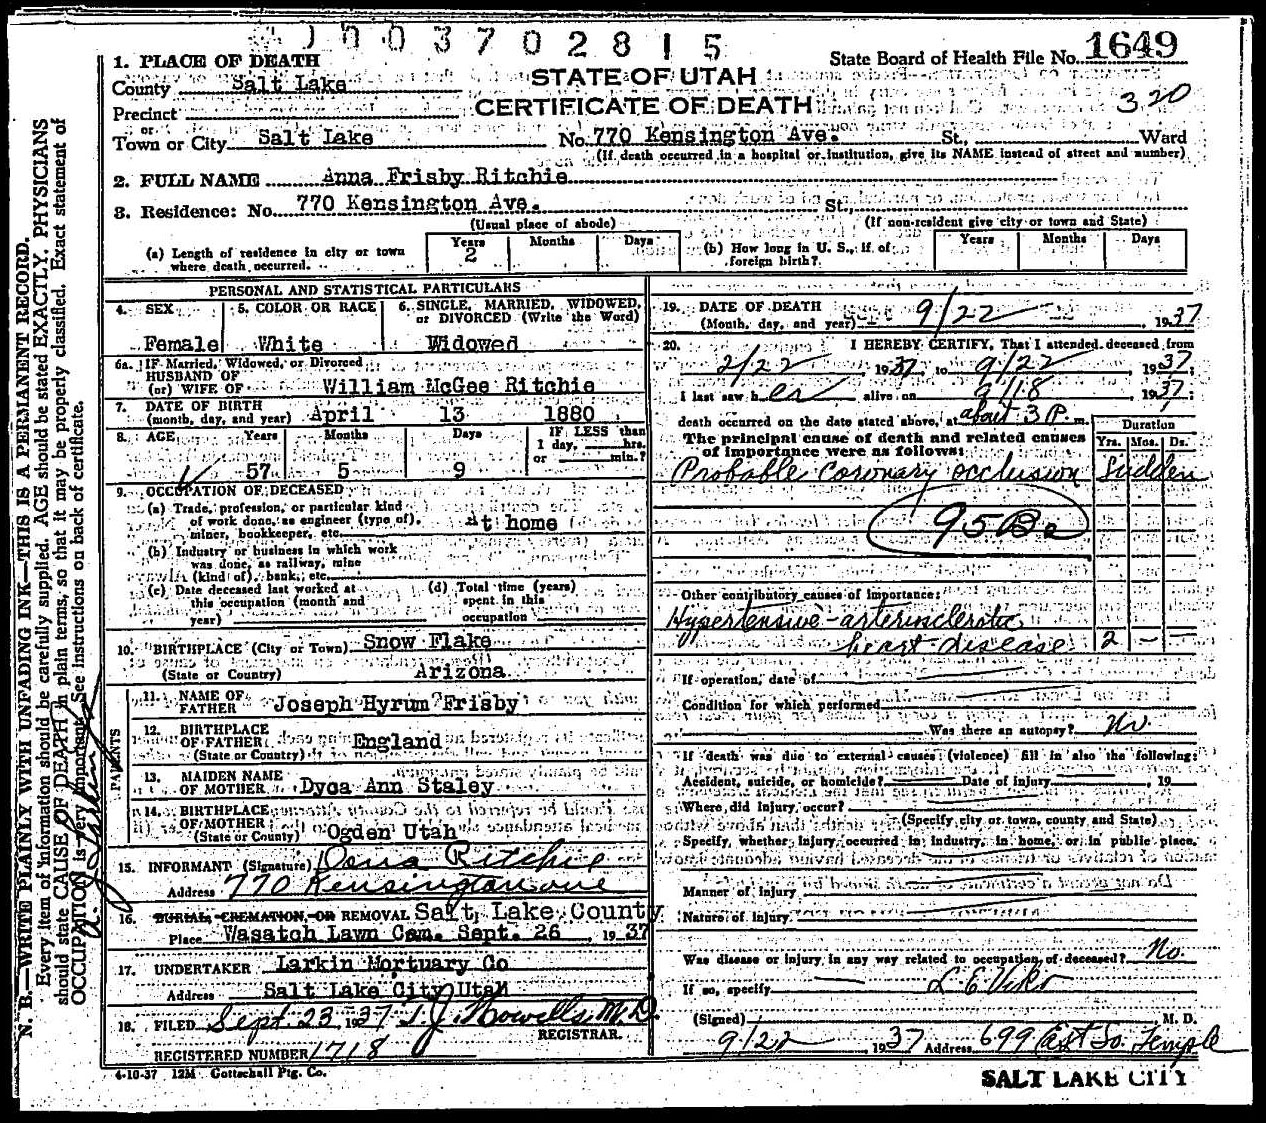 0003702815
State Board of Health File No. 1649
1. PLACE OF DEATH
County Salt Lake
STATE OF UTAH
CERTIFICATE OF DEATH
320
Precinct
or
Town or City Salt Lake No. 770 Kensington Ave. St., Ward
(If death occurred in a hospital or institution, give its NAME instead of street and number)
2. FULL NAME Anna Frisby Ritchie
3. Residence: No. 770 Kensington Ave. St.,
(Usual place of abode) (If non-resident give city or town and State)
(a) Length of residence in city or town where death occurred. Years 2 Months Days
(b) How long in U. S., if of foreign birth? Years Months Days
PERSONAL AND STATISTICAL PARTICULARS
4. SEX Female
5. COLOR OR RACE White
6. SINGLE, MARRIED, WIDOWED, or DIVORCED (Write the Word) Widowed
6a. IF Married, Widowed, or Divorced
HUSBAND OF
(or) WIFE OF William McGee Ritchie
7. DATE OF BIRTH
(month, day, and year) April 13 1880
8. AGE Years 57 Months 5 Days 9
IF LESS than 1 day, hrs. or min.?
9. OCCUPATION OF DECEASED
(a) Trade, profession, or particular kind of work done, as engineer (type of), miner, bookkeeper, etc. At home
(b) Industry or business in which work was done, as railway, mine (kind of), bank, etc.
(c) Date deceased last worked at this occupation (month and year)
(d) Total time (years) spent in this occupation
10. BIRTHPLACE (City or Town) Snow Flake
(State or Country) Arizona
PARENTS
11. NAME OF FATHER Joseph Hyrum Frisby
12. BIRTHPLACE OF FATHER
(State or Country) England
13. MAIDEN NAME OF MOTHER Dyca Ann Staley
14. BIRTHPLACE OF MOTHER
(State or County) Ogden Utah
15. INFORMANT (Signature) Ritchie
Address 770 Kensington ave
16. BURIAL, CREMATION, OR REMOVAL Salt Lake County
Place Wasatch Lawn Cem. Sept. 26, 1937
17. UNDERTAKER Larkin Mortuary Co
Address Salt Lake City Utah
18. FILED Sept. 23, 1937 T. J. Howells, M. D.
REGISTRAR.
REGISTERED NUMBER 1718
4-10-37 12M Gottschall Ptg. Co.
19. DATE OF DEATH
(Month, day, and year) 9/22, 1937
20. I HEREBY CERTIFY, That I attended deceased from
2/22 1937 to 9/22, 1937;
I last saw her alive on 9/18, 1937;
death occurred on the date stated above, at about 3 P. m.
The principal cause of death and related causes of importance were as follows:
Duration
Yrs. Mos. Ds.
Probable coronary occlusion Sudden
Other contributory causes of importance:
Hypertensive - arteriosclerotic
heart disease 2 - -
If operation, date of
Condition for which performed
Was there an autopsy? No.
If death was due to external causes (violence) fill in also the following:
Accident, suicide, or homicide? Date of injury 19
Where did injury occur?
(Specify city or town, county and State)
Specify, whether injury occurred in industry, in home, or in public place.
Manner of injury
Nature of injury
Was disease or injury in any way related to occupation of deceased? No.
If so, specify
(Signed) L. E. Viko M. D.
9/22, 1937 Address 699 East So. Temple
SALT LAKE CITY
N. B.—WRITE PLAINLY WITH UNFADING INK—THIS IS A PERMANENT RECORD.
Every item of information should be carefully supplied. AGE should be stated EXACTLY. PHYSICIANS
should state CAUSE OF DEATH in plain terms, so that it may be properly classified. Exact statement of
OCCUPATION is very important. See instructions on back of certificate.